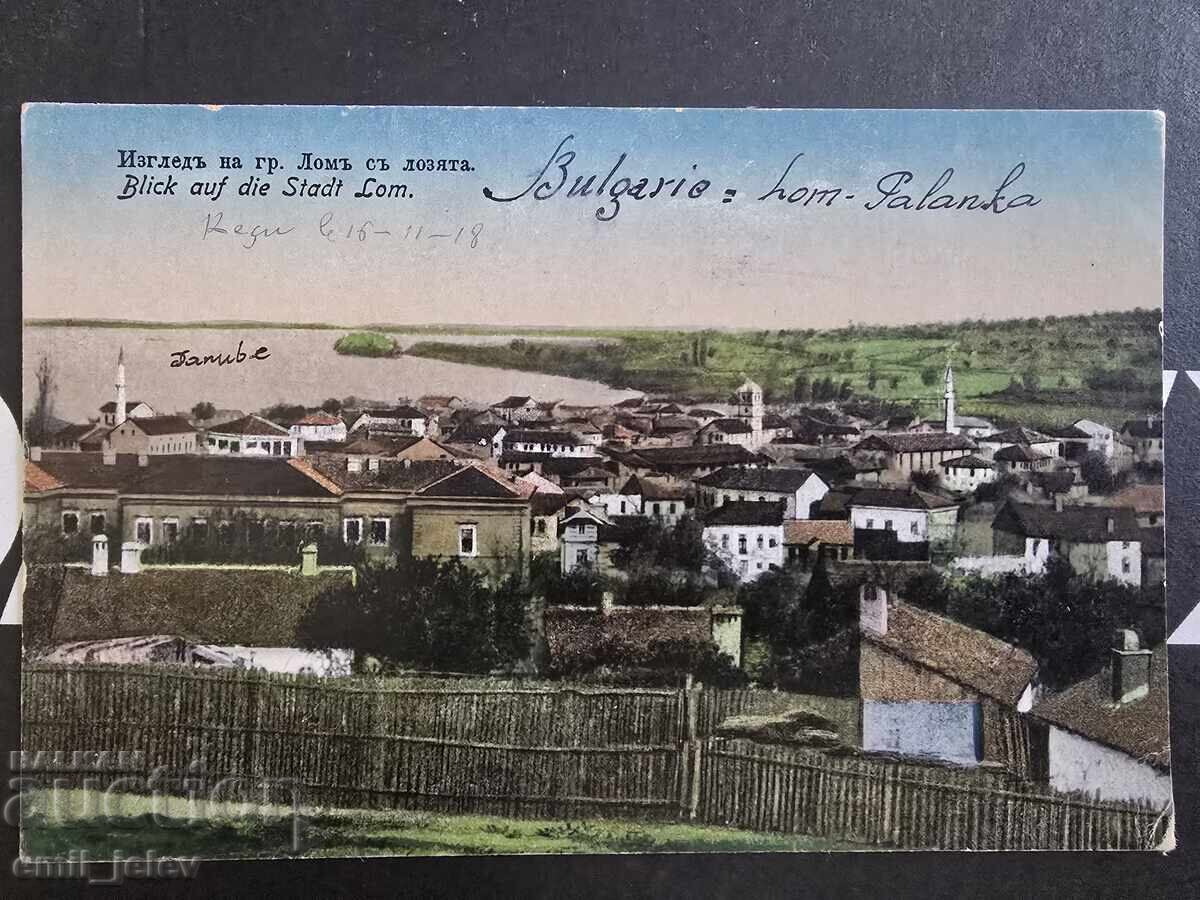 Изгледъ на гр. Ломъ съ лозята.
Blick auf die Stadt Lom.
Bulgarie = Lom-Palanka
Reçu le 16-11-18
Danube
БАЛКАН
auction
emil_jelev